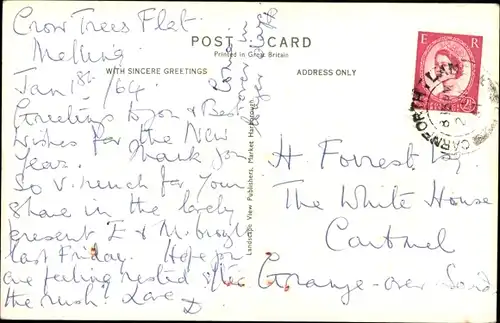 Crow Trees Flat
Melling
Jan 1st /64.
Greetings to you & Best
wishes for the New
Year. Thank you
So v. much for your
share in the lovely
present E & M. brought
last Friday. Hope you
are feeling rested after
the rush! Love D
POST CARD
Printed in Great Britain
WITH SINCERE GREETINGS
ADDRESS ONLY
Landscape View Publishers, Market Harborough
E R
CARNFORTH LANCS
H. Forrest Esq
The White House
Cartmel
Grange-over-Sands